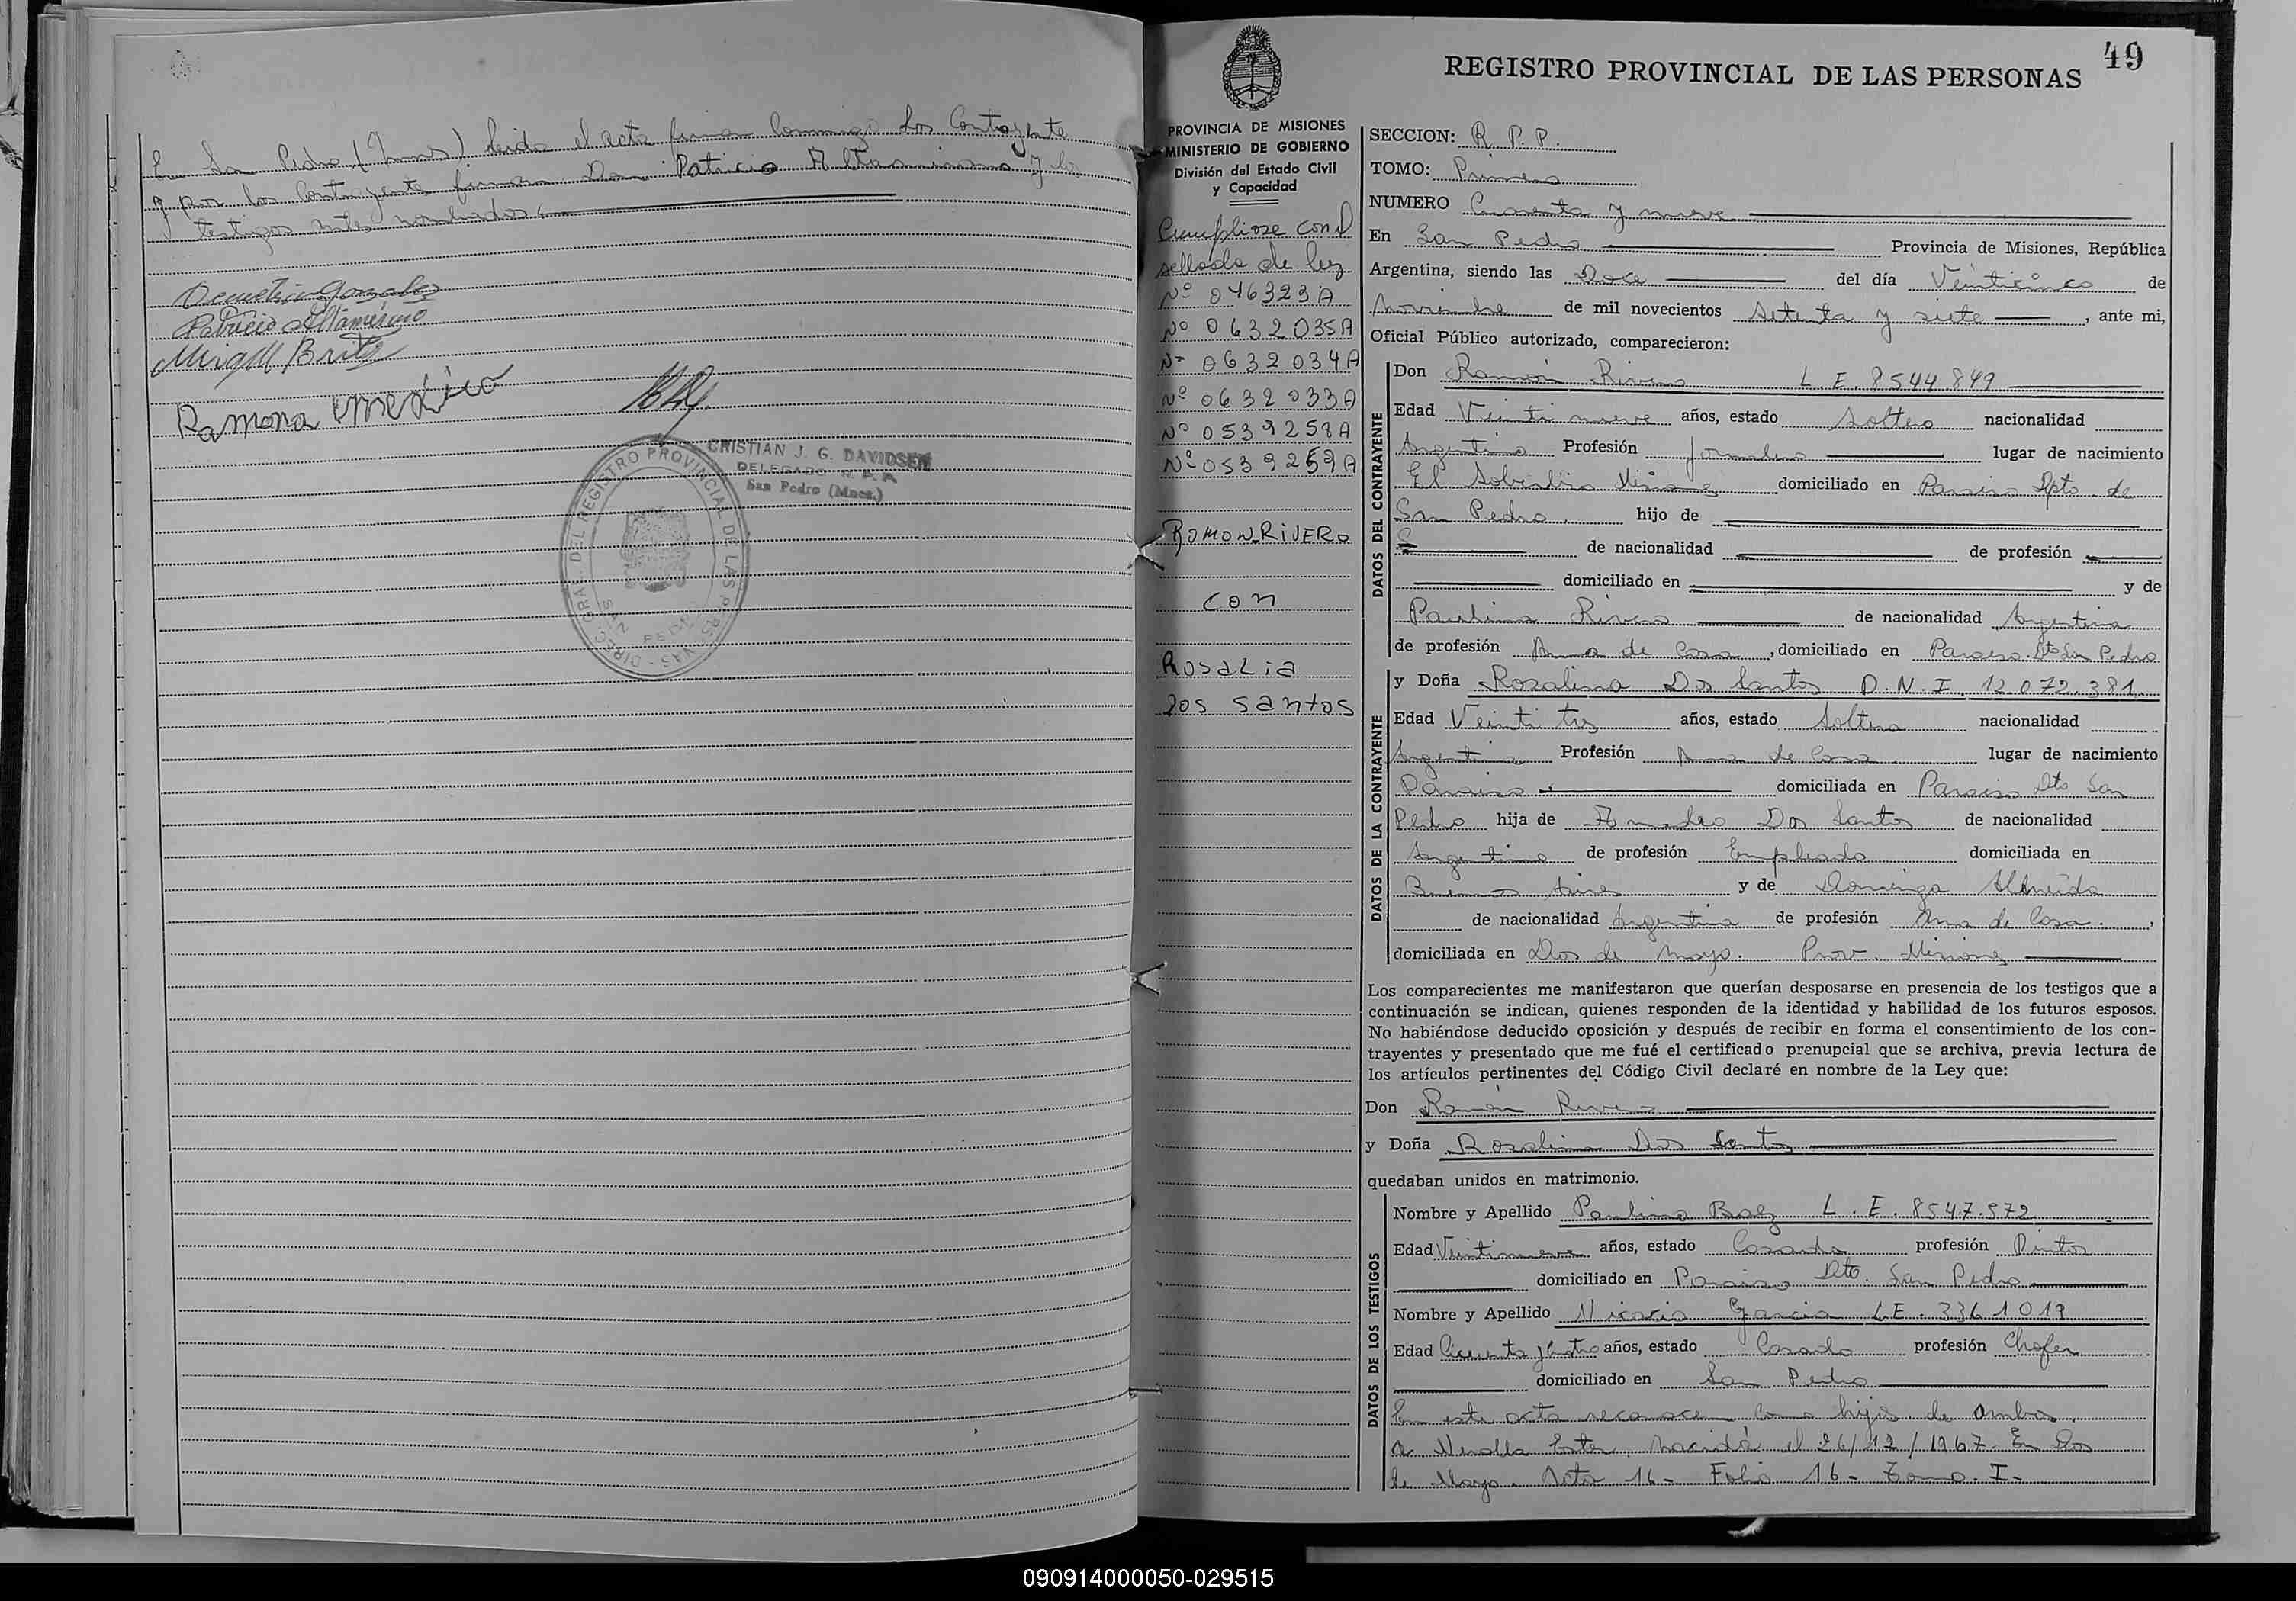 En San Pedro (Mnes) leida el acta firman conmigo los Contrayente
y por los Contrayente firman Don Patricio Altamirano y los
testigos antes nombrados.
Demetrio Gonzalez
Patricio Altamirano
Miguel Britez
Ramona
CRISTIAN J. G. DAVIDSEN
DELEGADO R. P. P.
San Pedro (Mnes.)
DIREC. GRAL. DEL REGISTRO PROVINCIAL DE LAS PERSONAS
SAN PEDRO
49
REGISTRO PROVINCIAL DE LAS PERSONAS
PROVINCIA DE MISIONES
MINISTERIO DE GOBIERNO
División del Estado Civil
y Capacidad
Cumpliose con el
sellado de ley
Nº 046323A
Nº 0632035A
Nº 0632034A
Nº 0632033A
Nº 0539258A
Nº 0539259A
RAMON RIVERO
con
ROSALIA
DOS SANTOS
SECCION: R. P. P.
TOMO: Primero
NUMERO Cuarenta y nueve
En San Pedro Provincia de Misiones, República
Argentina, siendo las Doce del día Veinticinco de
Noviembre de mil novecientos Setenta y siete, ante mi,
Oficial Público autorizado, comparecieron:
DATOS DEL CONTRAYENTE
Don Ramón Rivero L. E. 8544849
Edad Veinti nueve años, estado soltero nacionalidad
Argentino Profesión Jornalero lugar de nacimiento
El Soberbio Misiones domiciliado en Paraiso Dpto. de
San Pedro. hijo de
de nacionalidad de profesión
domiciliado en y de
Paulina Rivero de nacionalidad Argentina
de profesión Ama de Casa, domiciliado en Paraiso Dto San Pedro
DATOS DE LA CONTRAYENTE
y Doña Rosalina Dos Santos D. N. I. 12.072.381.
Edad Veinti tres años, estado Soltera nacionalidad
Argentina Profesión Ama de Casa lugar de nacimiento
Paraiso domiciliada en Paraiso Dto San
Pedro hija de Amadeo Dos Santos de nacionalidad
Argentino de profesión Empleado domiciliada en
Buenos Aires y de Dominga Almeida
de nacionalidad Argentina de profesión Ama de Casa.,
domiciliada en Dos de Mayo. Prov. Misiones
Los comparecientes me manifestaron que querían desposarse en presencia de los testigos que a
continuación se indican, quienes responden de la identidad y habilidad de los futuros esposos.
No habiéndose deducido oposición y después de recibir en forma el consentimiento de los con-
trayentes y presentado que me fué el certificado prenupcial que se archiva, previa lectura de
los artículos pertinentes del Código Civil declaré en nombre de la Ley que:
Don Ramón Rivero
y Doña Rosalina Dos Santos
quedaban unidos en matrimonio.
DATOS DE LOS TESTIGOS
Nombre y Apellido Paulino Baez L. E. 8547.572
Edad Veintinueve años, estado Casado profesión Pintor
domiciliado en Paraiso Dto. San Pedro
Nombre y Apellido Nicasio Garcia L.E. 3361019
Edad Cicuenta y Cuatro años, estado Casado profesión Chofer
domiciliado en San Pedro
En este acta reconocen como hijos de ambos.
a Ester nacida el 26/12/1967. En Dos
de Mayo. Acta 16- Folio 16- Tomo. I-
090914000050-029515